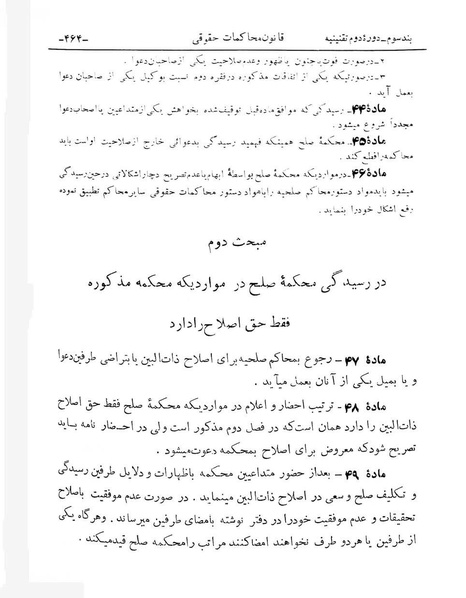 بند سوم ـ دورهٔ دوم تقنینیه قانون محاکمات حقوقی ـ۴۶۴ـ
۲ـ در صورت فوت یا جنون یا ظهور وعدم صلاحیت یکی از صاحبان دعوا .
۳ـ در صورتیکه یکی از اتفاقات مذکوره در فقره دوم نسبت بوکیل یکی از صاحبان دعوا
بعمل آید .
مادهٔ ۴۴ـ رسیدگی که موافق ماده قبل توقیف شده بخواهش یکی از متداعیین یا اصحاب دعوا
مجدداً شروع میشود .
مادهٔ ۴۵ـ محکمهٔ صلح همینکه فهمید رسیدگی بدعوائی خارج از صلاحیت او است باید
محاکمه را قطع کند .
مادهٔ ۴۶ـ در مواردیکه محکمهٔ صلح بواسطهٔ ابهام یا عدم تصریح دچار اشکالاتی در حین رسیدگی
میشود باید مواد دستور محاکم صلحیه را با مواد دستور محاکمات حقوقی سایر محاکم تطبیق نموده
رفع اشکال خود را بنماید .
مبحث دوم
در رسیدگی محکمهٔ صلح در مواردیکه محکمه مذکوره
فقط حق اصلاح را دارد
مادهٔ ۴۷ ـ رجوع بمحاکم صلحیه برای اصلاح ذات‌البین یا بتراضی طرفین دعوا
و یا بمیل یکی از آنان بعمل میآید .
مادهٔ ۴۸ ـ ترتیب احضار و اعلام در مواردیکه محکمهٔ صلح فقط حق اصلاح
ذات‌البین را دارد همان است که در فصل دوم مذکور است ولی در احضار نامه باید
تصریح شود که معروض برای اصلاح بمحکمه دعوت میشود .
مادهٔ ۴۹ ـ بعد از حضور متداعیین محکمه باظهارات و دلایل طرفین رسیدگی
و تکلیف صلح و سعی در اصلاح ذات‌البین مینماید . در صورت عدم موفقیت باصلاح
تحقیقات و عدم موفقیت خود را در دفتر نوشته بامضای طرفین میرساند . و هرگاه یکی
از طرفین یا هر دو طرف نخواهند امضا کنند مراتب را محکمه صلح قید میکند .